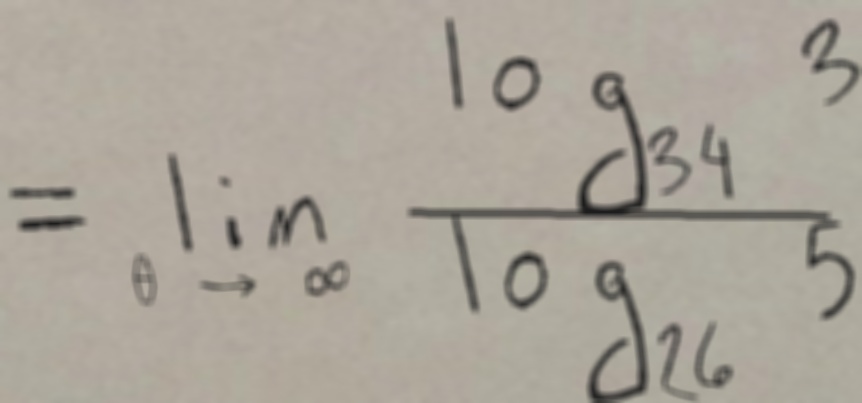 = lim_{θ → ∞} \frac{log_{34} 3}{log_{26} 5}